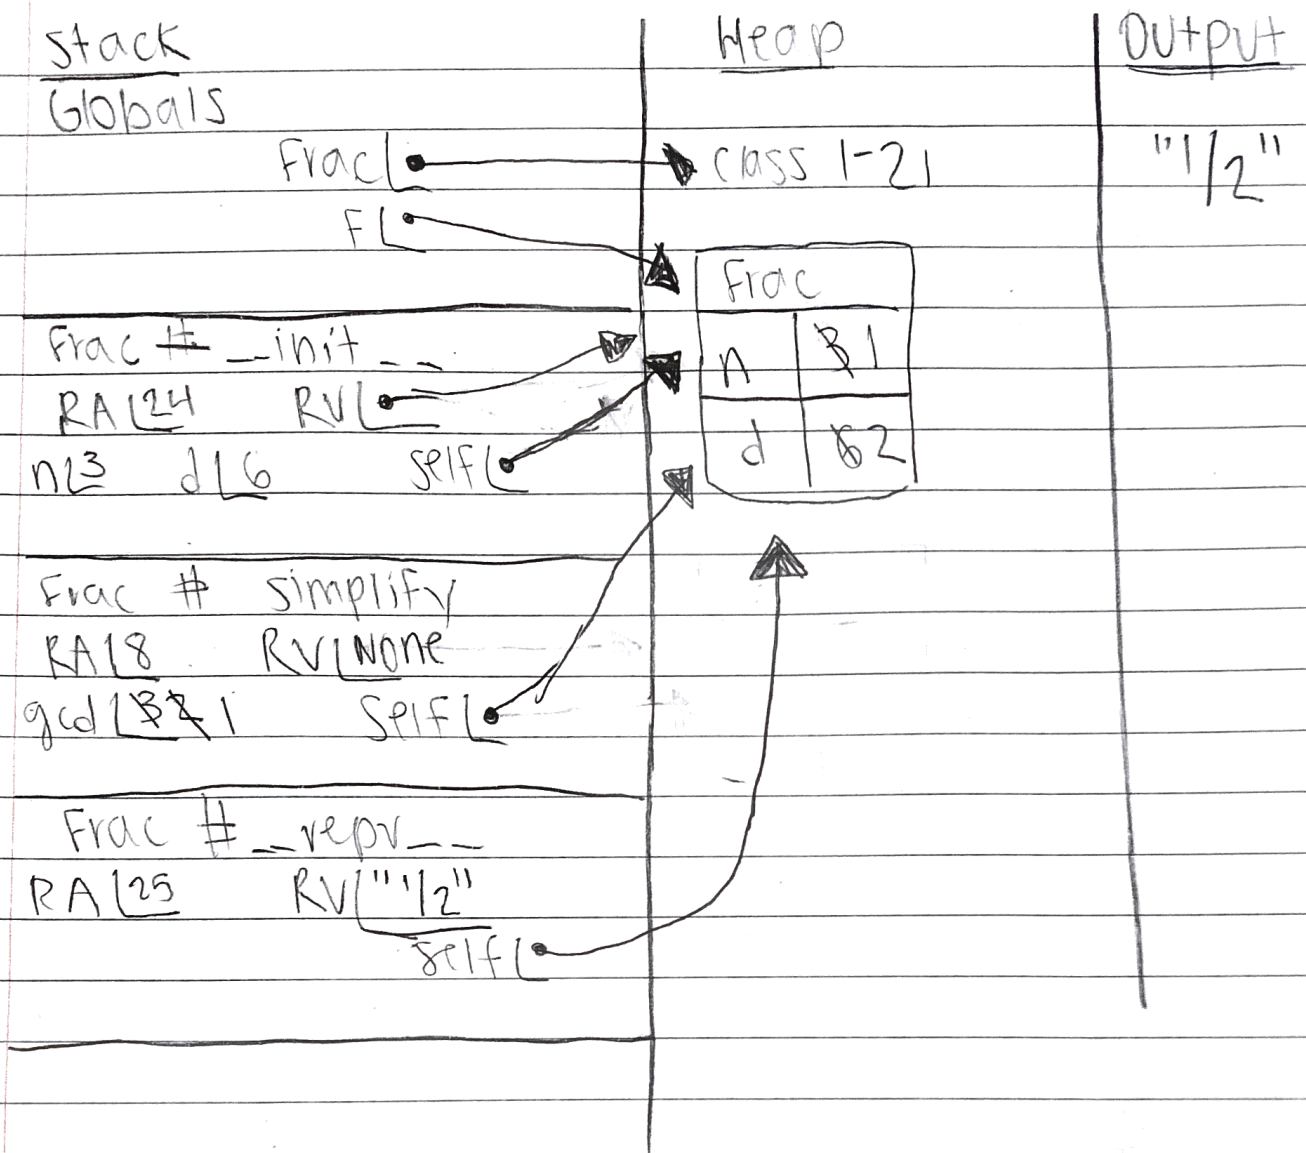 Stack
Globals
Frac
F
Frac # __init__
RA 24 RV
n 3 d 6 self
Frac # simplify
RA 8 RV None
gcd 3 2 1 self
Frac # __repr__
RA 25 RV "1/2"
self
Heap
class 1-21
Frac
n 3 1
d 6 2
Output
"1/2"